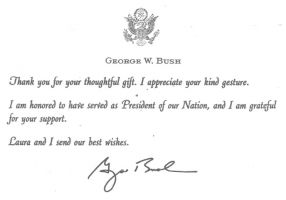 GEORGE W. BUSH
Thank you for your thoughtful gift. I appreciate your kind gesture.
I am honored to have served as President of our Nation, and I am grateful
for your support.
Laura and I send our best wishes.